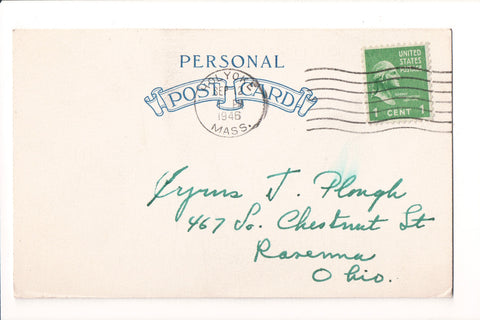 PERSONAL
POST CARD
HOLYOKE
1946
MASS.
UNITED
STATES
POSTAGE
1 CENT 1
Cyrus J. Plough
467 So. Chestnut St
Ravenna
Ohio.